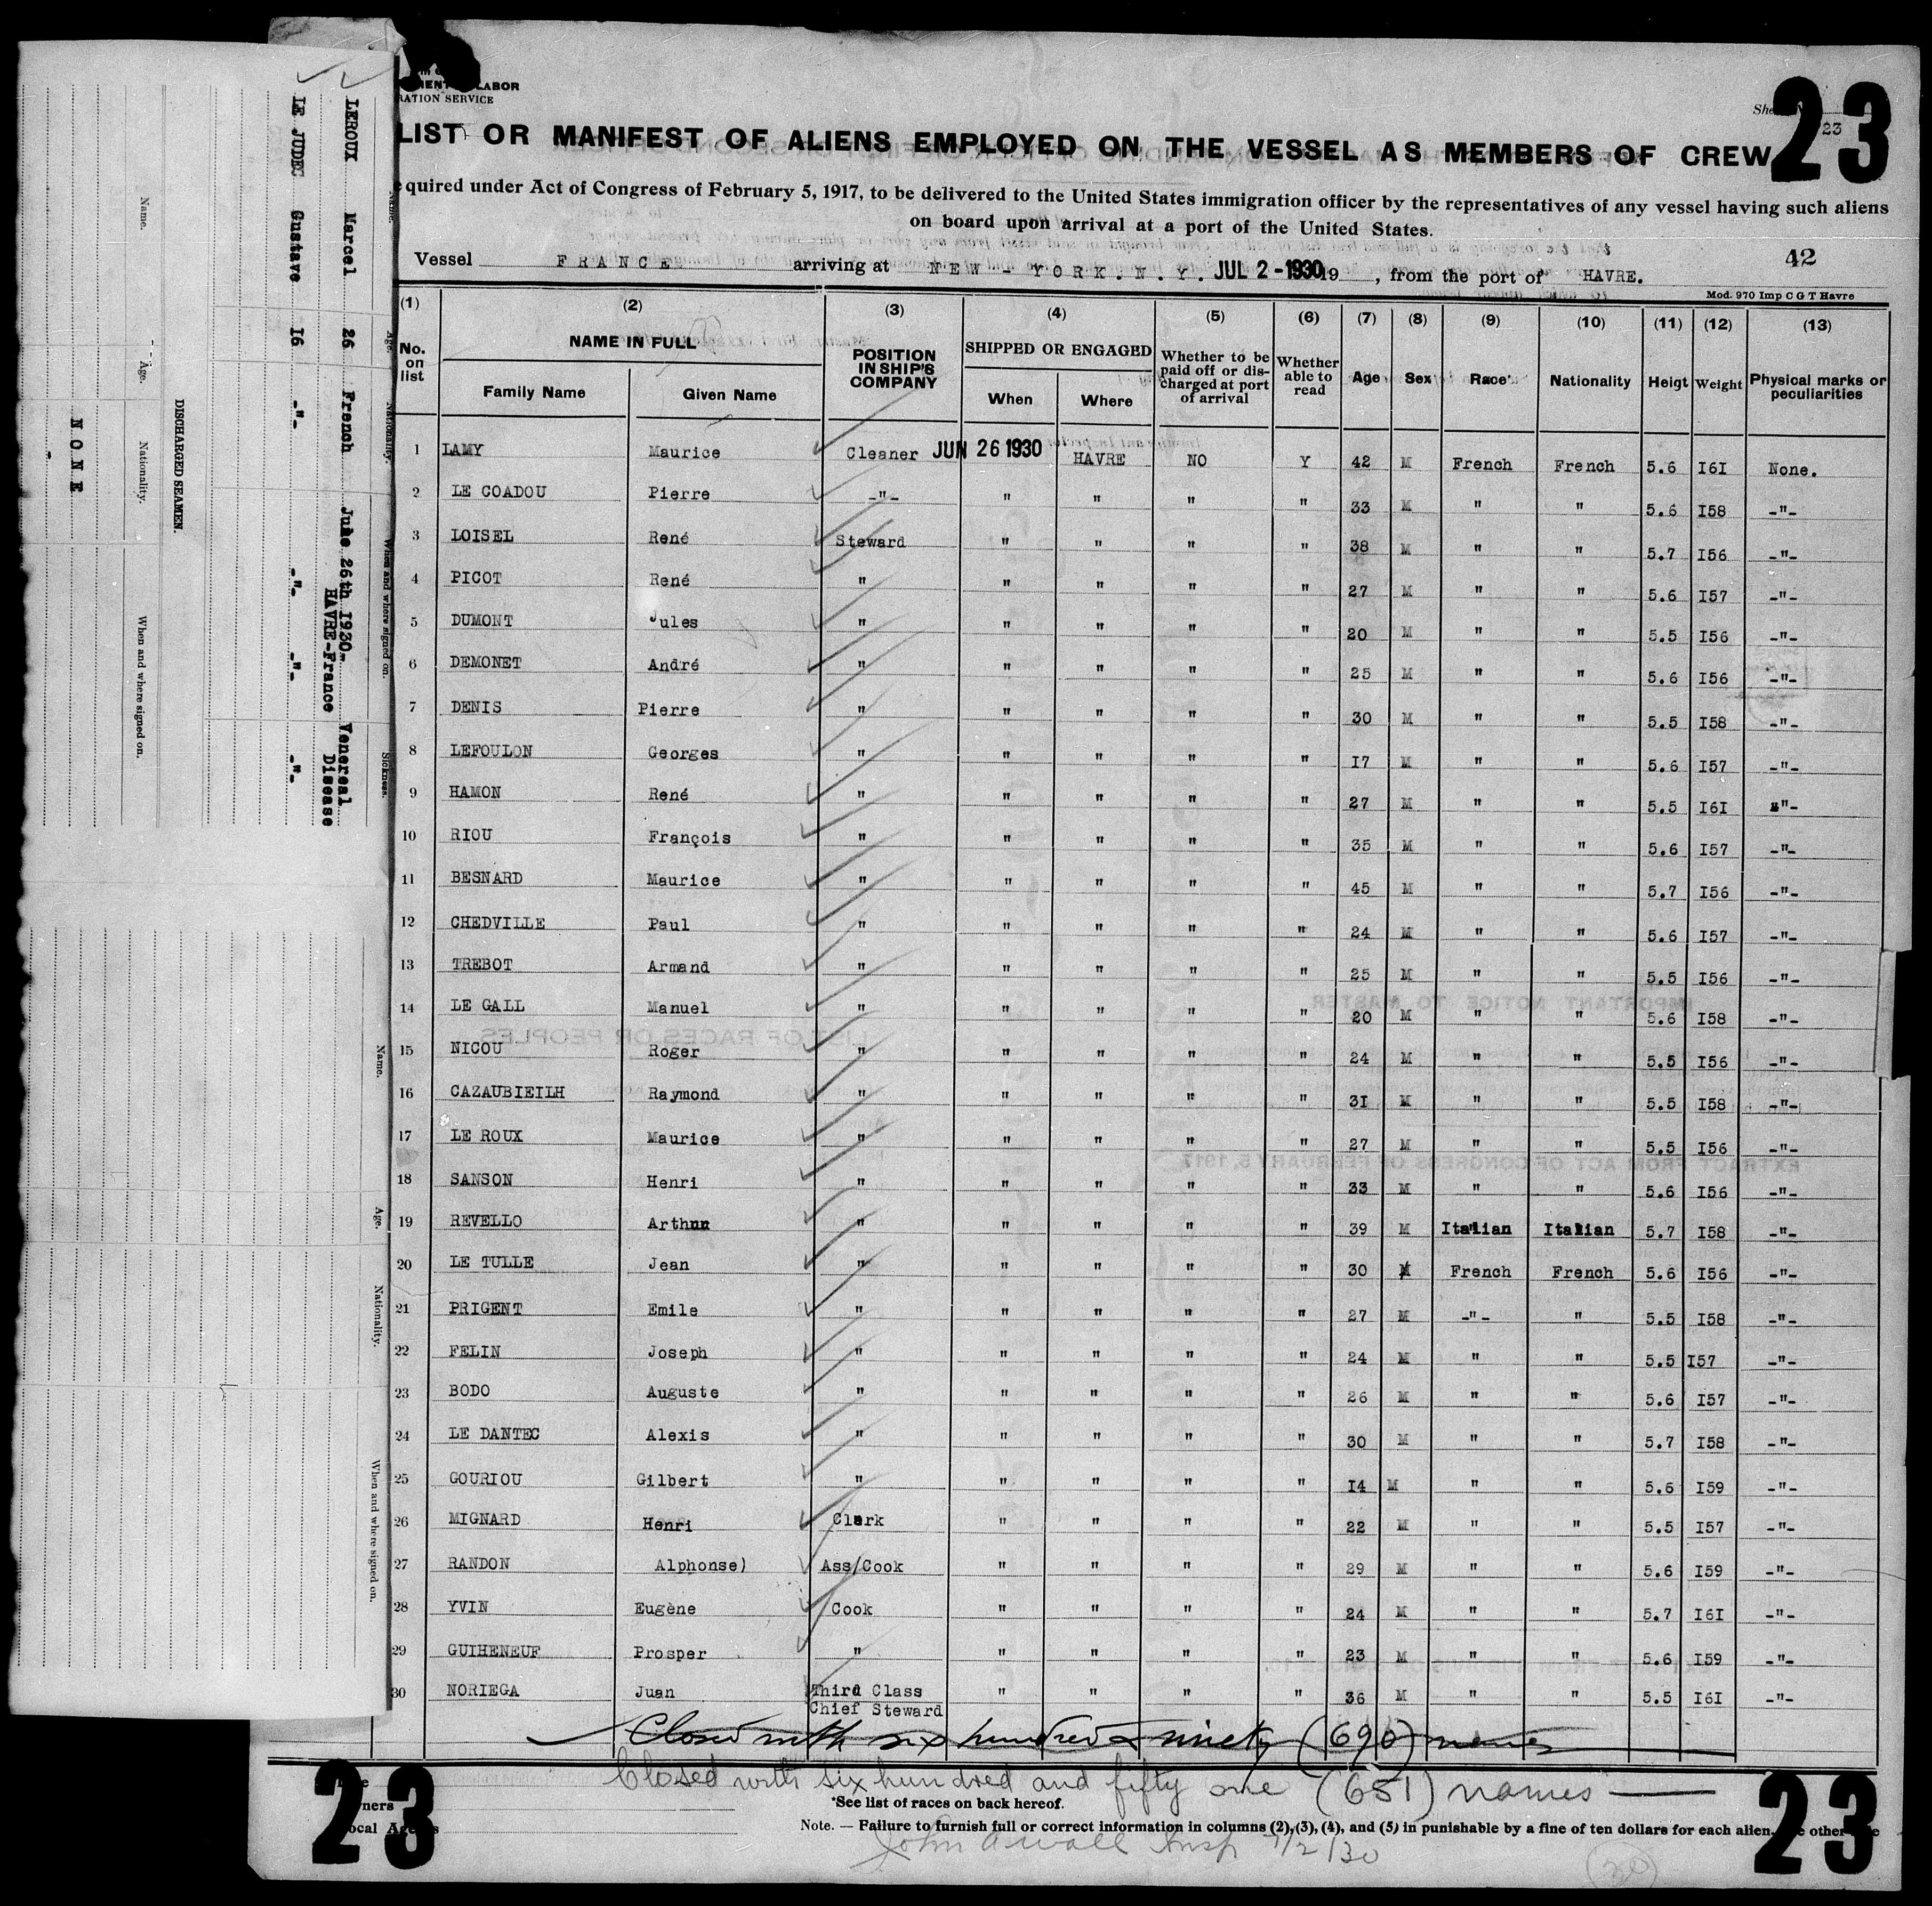 LABOR
RATION SERVICE
23
23
LIST OR MANIFEST OF ALIENS EMPLOYED ON THE VESSEL AS MEMBERS OF CREW
quired under Act of Congress of February 5, 1917, to be delivered to the United States immigration officer by the representatives of any vessel having such aliens
on board upon arrival at a port of the United States.
42
Vessel FRANCE arriving at NEW-YORK.N.Y. JUL 2-1930 19 , from the port of HAVRE.
Mod. 970 Imp C G T Havre
(1) (2) (3) (4) (5) (6) (7) (8) (9) (10) (11) (12) (13)
No. on list NAME IN FULL Family Name Given Name POSITION IN SHIP'S COMPANY SHIPPED OR ENGAGED When Where Whether to be paid off or discharged at port of arrival Whether able to read Age Sex Race* Nationality Heigt Weight Physical marks or peculiarities
1 LAMY Maurice Cleaner JUN 26 1930 HAVRE NO Y 42 M French French 5.6 I6I None.
2 LE COADOU Pierre -"- " " " " 33 M " " 5.6 I58 -"-
3 LOISEL René Steward " " " " 38 M " " 5.7 I56 -"-
4 PICOT René " " " " " 27 M " " 5.6 I57 -"-
5 DUMONT Jules " " " " " 20 M " " 5.5 I56 -"-
6 DEMONET André " " " " " 25 M " " 5.6 I56 -"-
7 DENIS Pierre " " " " " 30 M " " 5.5 I58 -"-
8 LEFOULON Georges " " " " " I7 M " " 5.6 I57 -"-
9 HAMON René " " " " " 27 M " " 5.5 I6I "-
10 RIOU François " " " " " 35 M " " 5.6 I57 -"-
11 BESNARD Maurice " " " " " 45 M " " 5.7 I56 -"-
12 CHEDVILLE Paul " " " " " 24 M " " 5.6 I57 -"-
13 TREBOT Armand " " " " " 25 M " " 5.5 I56 -"-
14 LE GALL Manuel " " " " " 20 M " " 5.6 I58 -"-
15 NICOU Roger " " " " " 24 M " " 5.5 I56 -"-
16 CAZAUBIEILH Raymond " " " " " 3I M " " 5.5 I58 -"-
17 LE ROUX Maurice " " " " " 27 M " " 5.5 I56 -"-
18 SANSON Henri " " " " " 33 M " " 5.6 I56 -"-
19 REVELLO " " " " " 39 M Italian Italian 5.7 I58 -"-
20 LE TULLE Jean " " " " " 30 M French French 5.6 I56 -"-
21 PRIGENT Emile " " " " " 27 M -"- " 5.5 I58 -"-
22 FELIN Joseph " " " " " 24 M " " 5.5 I57 -"-
23 BODO Auguste " " " " " 26 M " " 5.6 I57 -"-
24 LE DANTEC Alexis " " " " " 30 M " " 5.7 I58 -"-
25 GOURIOU Gilbert " " " " " I4 M " " 5.6 I59 -"-
26 MIGNARD Henri Clerk " " " " 22 M " " 5.5 I57 -"-
27 RANDON Alphonse) Ass/Cook " " " " 29 M " " 5.6 I59 -"-
28 YVIN Eugène Cook " " " " 24 M " " 5.7 I6I -"-
29 GUIHENEUF Prosper " " " " " 23 M " " 5.6 I59 -"-
30 NORIEGA Juan Third Class Chief Steward " " " " 36 M " " 5.5 I6I -"-
Closed with six hundred & ninety (690) names
Closed with six hundred and fifty one (651) names
*See list of races on back hereof.
Note. — Failure to furnish full or correct information in columns (2),(3), (4), and (5) in punishable by a fine of ten dollars for each alien.
Insp 7/2/30
23
23
Name. Age. Nationality. When and where signed on. Sickness.
LEROUX Marcel 26 French June 26th 1930- HAVRE-France Venereal Disease
LE JUDEC Gustave I6 -"- -"- -"- -"-
DISCHARGED SEAMEN.
Name. Age. Nationality. When and where signed on.
NONE
Name. Age. Nationality. When and where signed on.